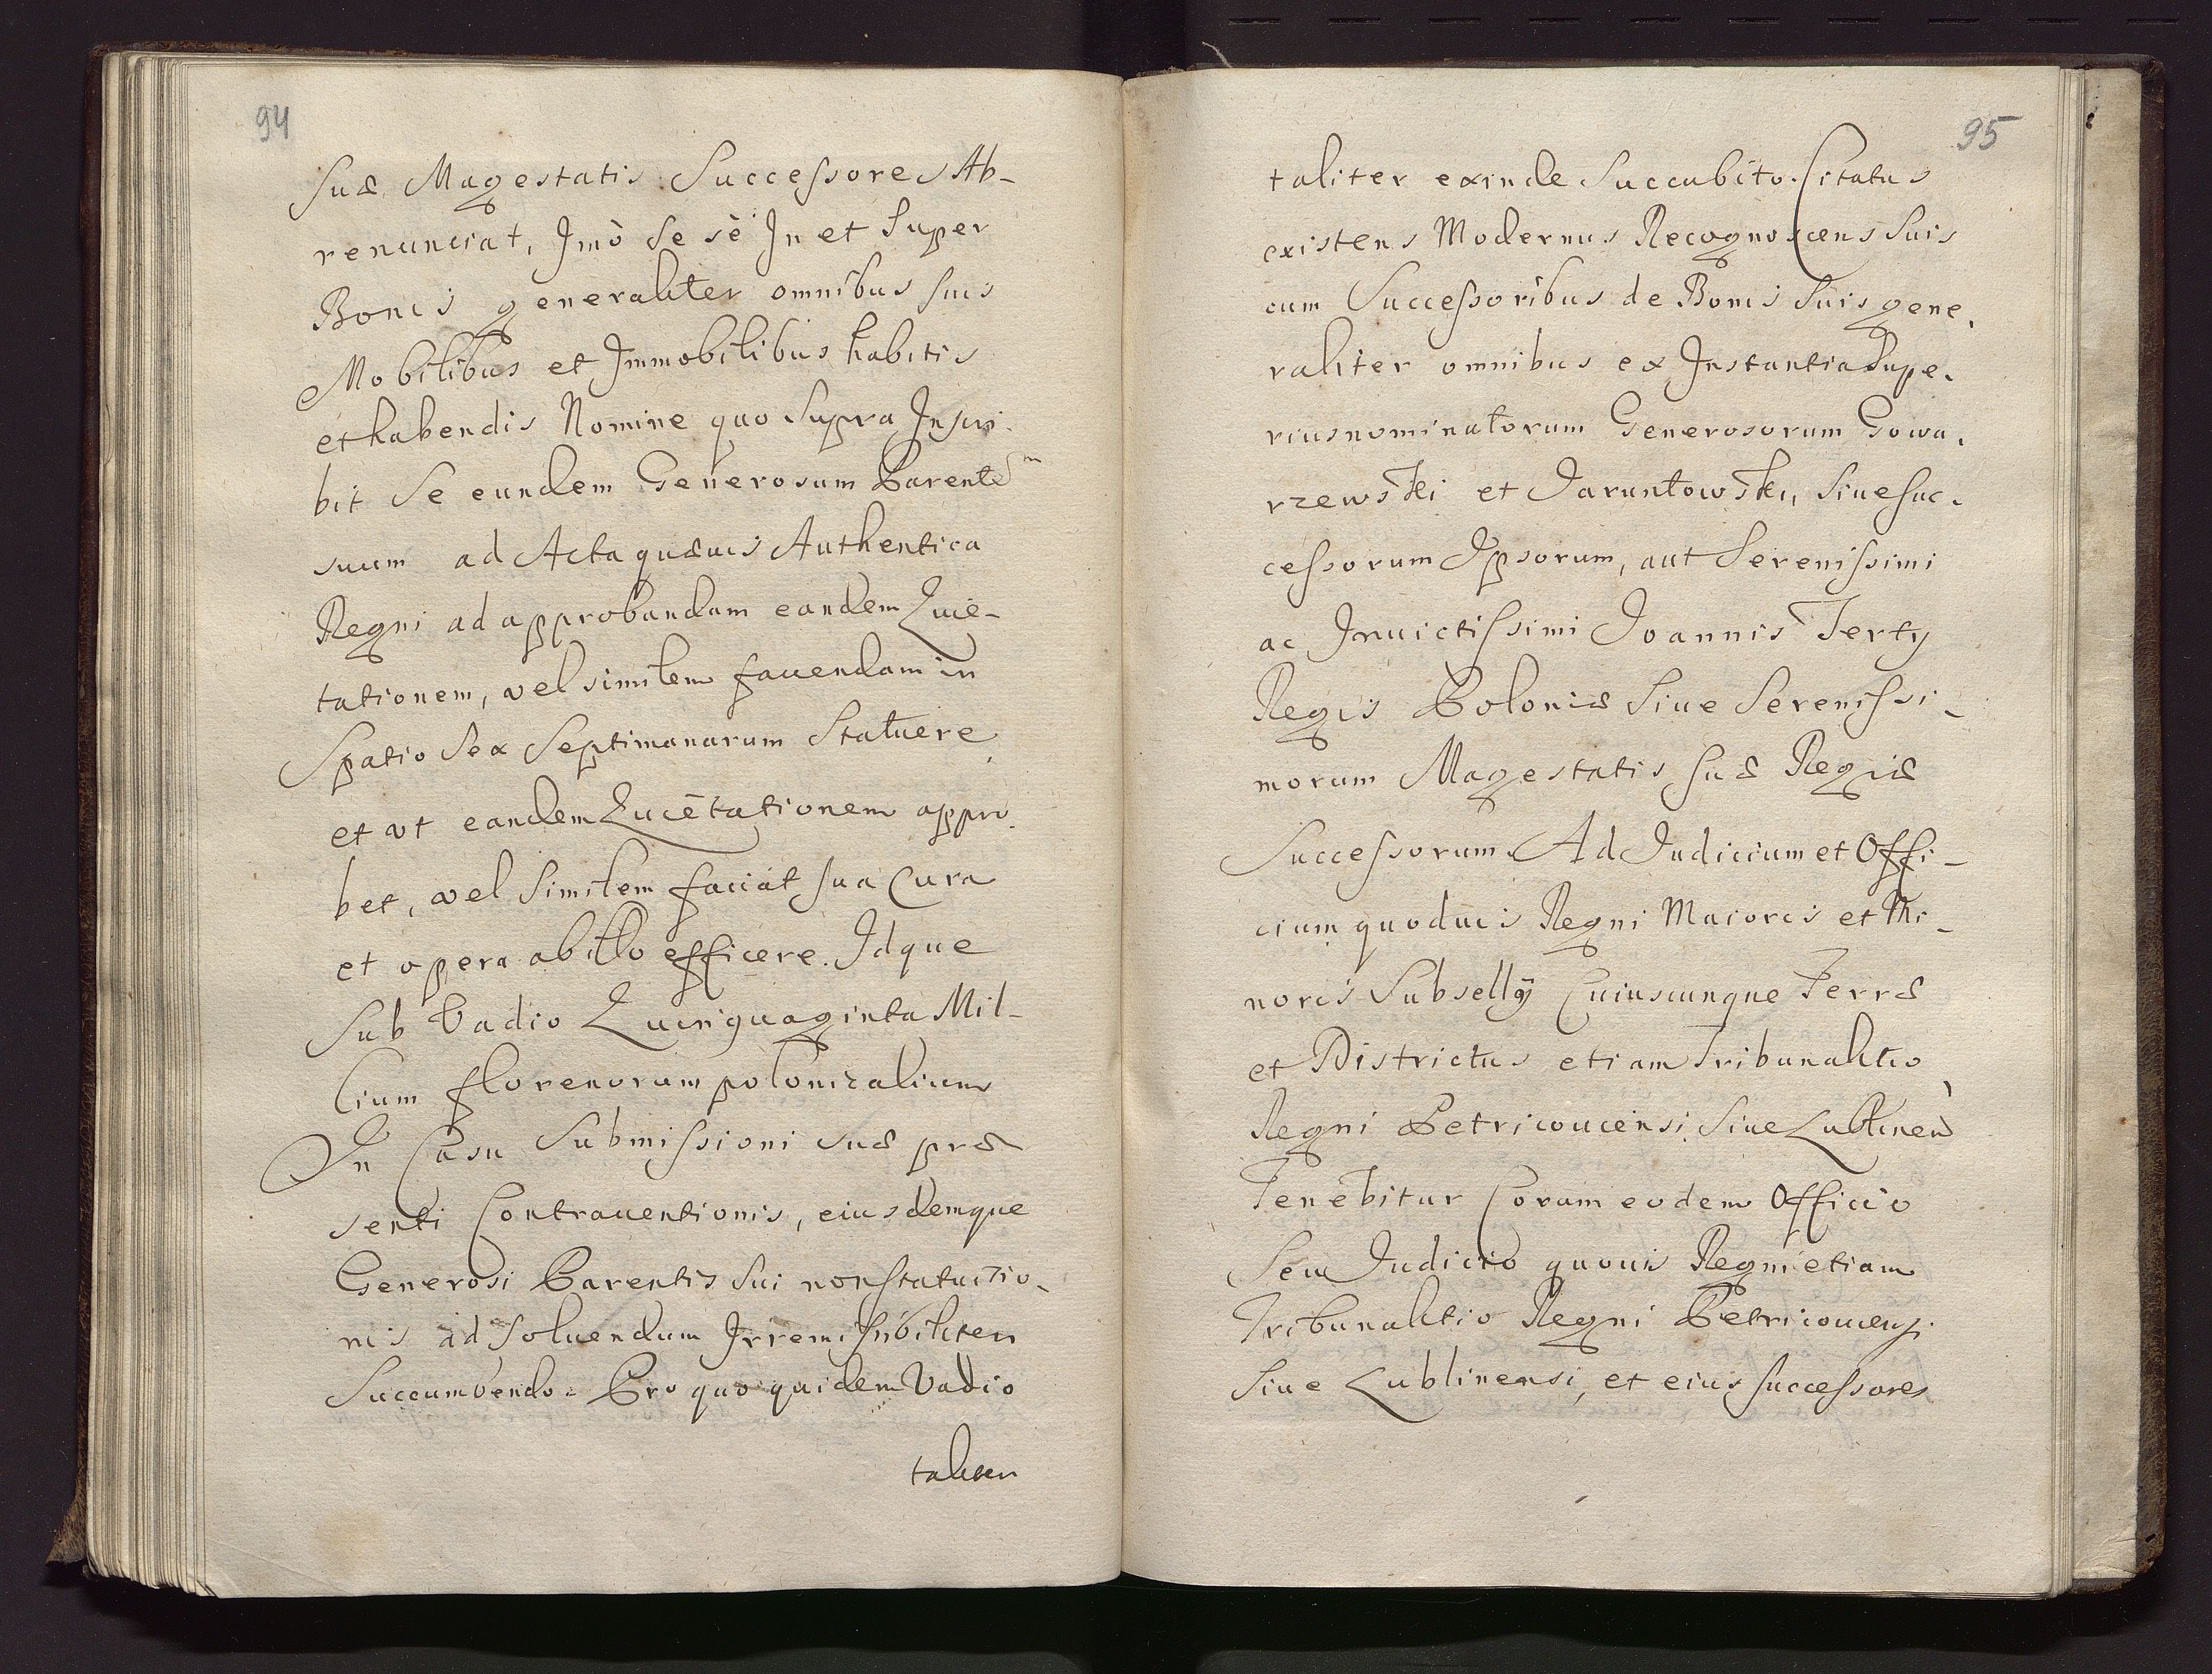 94
suæ Magestatis Successores Ab-
renunciat, Imò Se sè In et Super
Bonis generaliter omnibus suis
Mobilibus et Immobilibus habitis
et habendis Nomine quo Supra Inscri-
bit Se eundem Generosum Parentem
suum ad Acta quæuis Authentica
Regni ad approbandam eandem Quie-
tationem, vel similem fauendam in
Spatio Sex Septimanarum Statuere
et vt eandem Quietationem appro-
bet, vel Similem faciat sua Cura
et opera ab illo efficere. Idque
Sub Vadio Quinquaginta Mil-
lium florenorum polonicalium
In Casu Submissioni suæ præ
senti Contrauentionis, eiusdemque
Generosi Parentis Sui non Statuitio-
nis ad Soluendum Irremissibiliter
Succumbendo. Pro quo quidem Vadio
taliter
95
taliter exinde Succubito. Citatus
existens Modernus Recognoscens Suis
cum Successoribus de Bonis Suis gene-
raliter omnibus ex Instantia Supe-
riusnominatorum Generosorum Gowa-
rzewski et Jaruntowski, Siue suc-
cessorum Ipsorum, aut Serenissimi
ac Inuictissimi Joannis Terty
Regis Poloniæ Siue Serenissi-
morum Magestatis suæ Regiæ
Successorum Ad Judicium et Offi-
cium quoduis Regni Maioris et Mi-
noris Subsellÿ Cuiuscunque Terræ
et Districtus etiam Tribunalitio
Regni Petricouiensi Siue Lublinen
Tenebitur Coram eodem Officio
Seu Judicio quouis Regni etiam
Tribunalitio Regni Petricouiensi
Siue Lublinensi, et eius successores